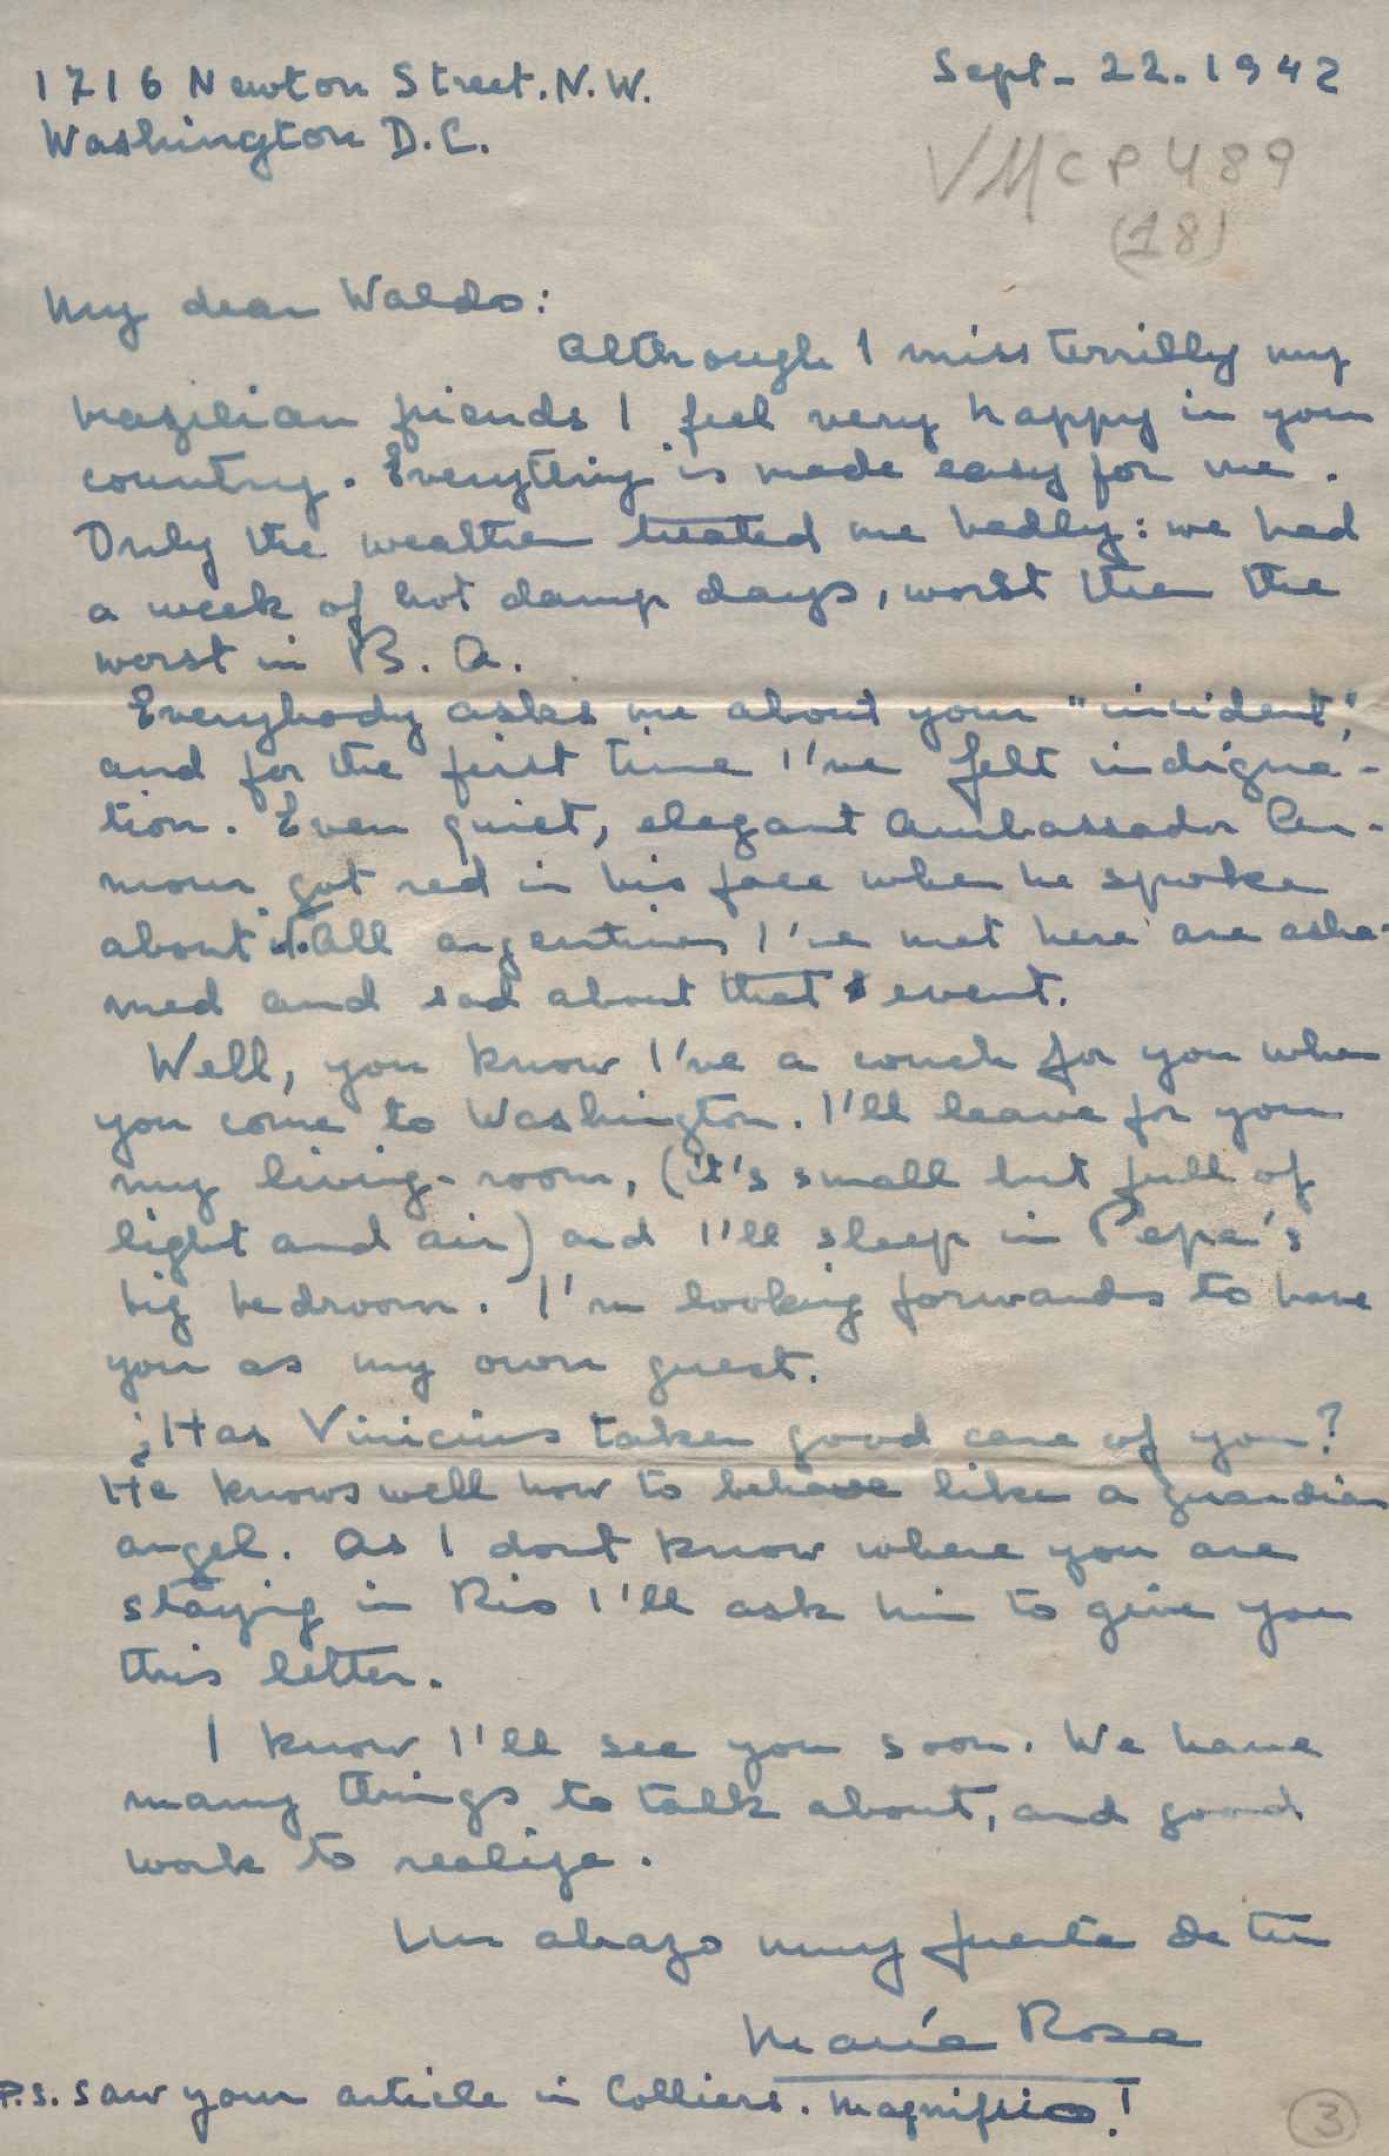 1716 Newton Street. N.W.
Sept- 22. 1942
Washington D.C.
VMCP489
(18)
My dear Waldo:
Although I miss terribly my
brazilian friends I feel very happy in your
country. Everything is made easy for me.
Only the weather treated me badly: we had
a week of hot damp days, worst then the
worst in B. A.
Everybody asks me about your "incident",
and for the first time I've felt indigna-
tion. Even quiet, elegant Ambassador
got red in his face when he spoke
about it. All argentines I've met here are asha-
med and sad about that event.
Well, you know I've a couch for you when
you come to Washington. I'll leave for you
my living-room, (it's small but full of
light and air) and I'll sleep in Pepa's
big bedroom. I'm looking forwards to have
you as my own guest.
¿Has Vinicius taken good care of you?
He knows well how to behave like a guardian
angel. As I dont know where you are
staying in Rio I'll ask him to give you
this letter.
I know I'll see you soon. We have
many things to talk about, and good
work to realize.
Un abrazo muy fuerte de tu
María Rosa
P.S. Saw your article in Colliers. Magnifico!
3